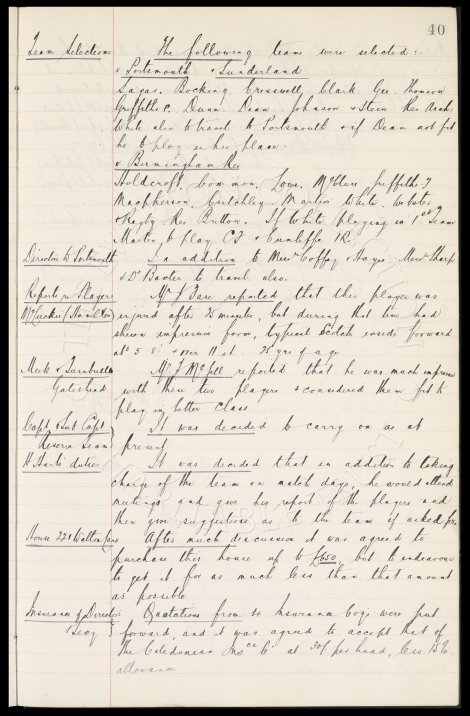 40
Team Selections The following teams were selected :-
v Portsmouth + Sunderland
Sagar. Bocking Cresswell, Clark Gee. Thomson
Griffiths C. Dunn. Dean. Johnson + Stein Res
White also to travel to Portsmouth + if Dean not fit
he to play in his place.
v Birmingham Res
Holdcroft, Common, Lowe. McClure Griffiths T
Macpherson, Critchley. Martin White. Webster
+ Rigby Res Britton. If White playing in 1st Team
Martin to play CF + Cunliffe IR.
Directors to Portsmouth In addition to Messrs Coffey + Hayes. Messrs Sharp
+ Dr Baxter to travel also.
Reports re Players Mr J Fare reported that this player was
McLuckie (Hamilton) injured after 25 minutes, but during that time had
shewn impressive form, typical Scotch inside forward
abt 5' 8" + over 11 st. 25 yrs of age.
Meek + Turnbull Mr J McGill reported that he was much impressed
Gateshead with these two players + considered them fit to
play in better class
Capt. + Sub Capt It was decided to carry on as at
Reserve Team present
H Hart's duties It was decided that in addition to taking
charge of the team on match days, he would attend
meetings and give his report of the players and
then give suggestions as to the team if asked for.
House 221 Walton Lane After much discussion it was agreed to
purchase this house up to £650, but to endeavour
to get it for as much less than that amount
as possible
Insurance of Directors Quotations from 4 Insurance Coys were put
+ Secy forward, and it was agreed to accept that of
the Caledonian Insce Co at 30/- per head, less 15%
allowance